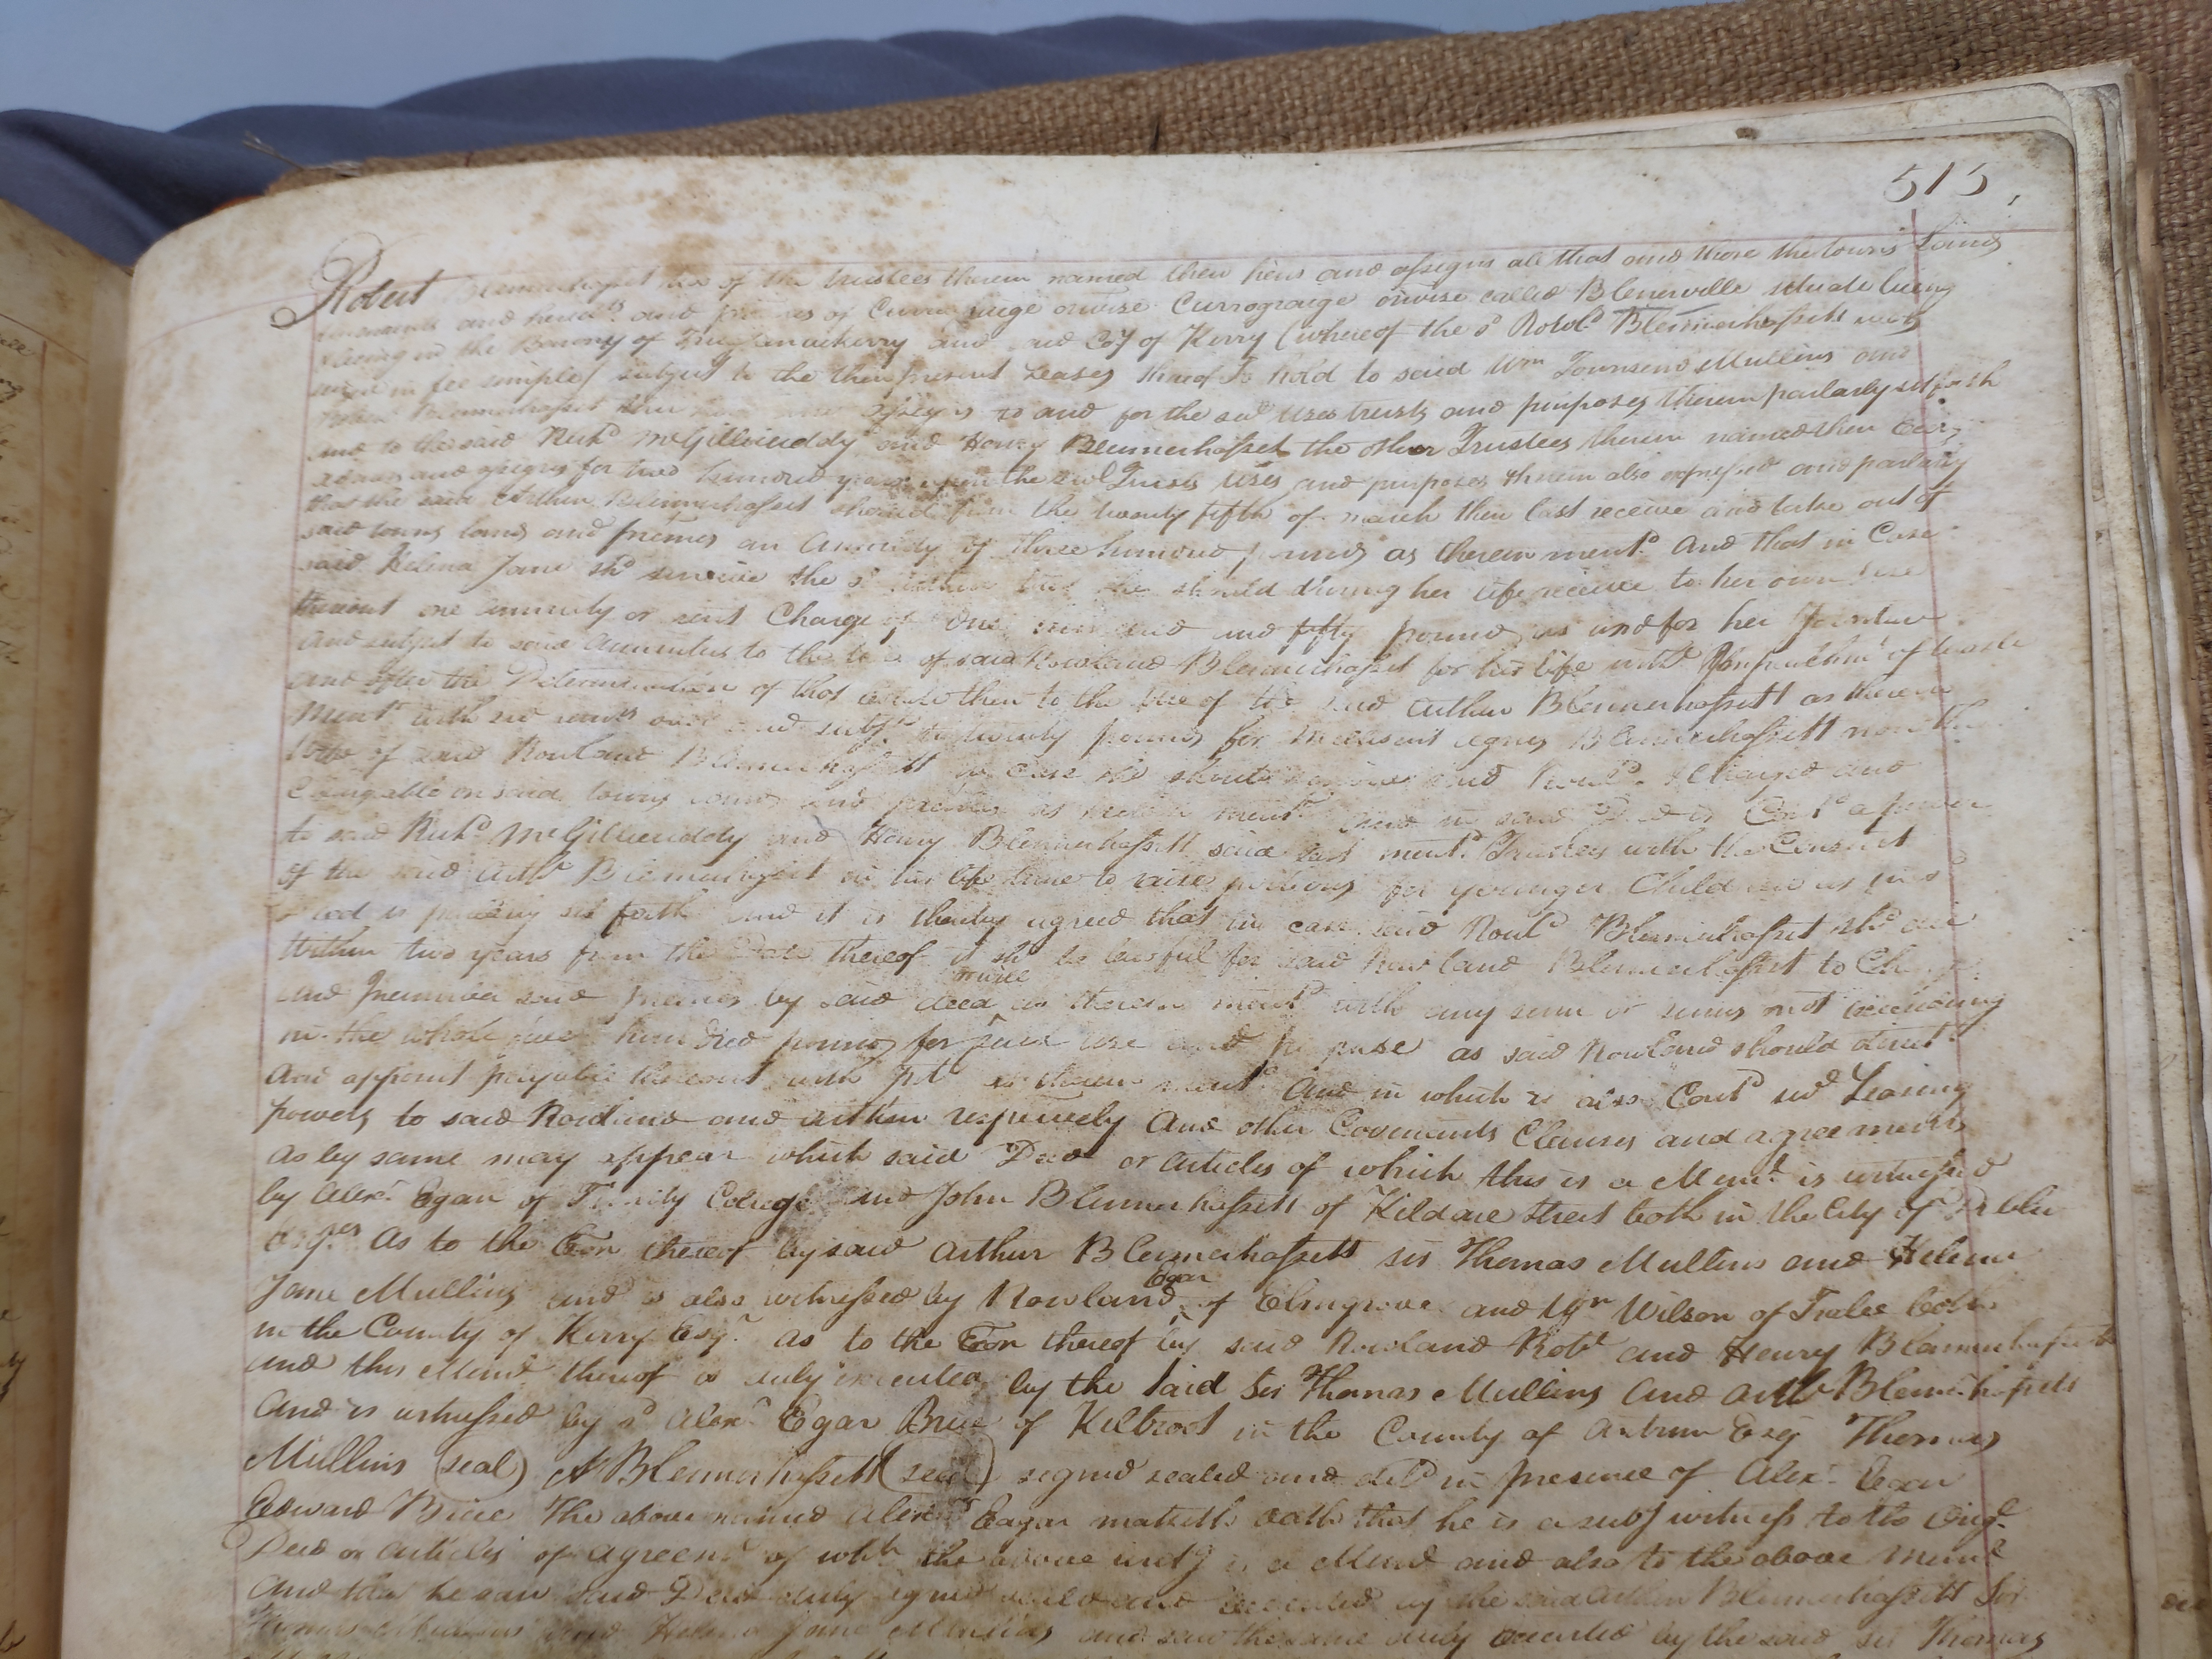 515
Robert Blennerhasset two of the trustees therein named their heirs and assigns all that and those the towns Lands
and heredts and premes of Curragraige orwise Currograige orwise called Blenerville situate lying
& being in the Barony of Trughanackmy and said Coy of Kerry (whereof the sd Rowld Blennerhassett was
seized in fee simple) subject to the then present Leases thereof To hold to said Wm Townsend Mullins and
Robert Blennerhasset their heirs and assigns to and for the sevl uses trusts and purposes therein partarly set forth
and to the said Richd McGillicuddy and Henry Blennerhasset the other Trustees therein named their Exrs
admrs and assigns for two hundred years upon the sevl Trusts uses and purposes therein also expressed and partarly
that the said Arthur Blennerhasset should from the twenty fifth of march then last receive and take out of
said towns lands and premes an annuity of three hundred pounds as therein mentd And that in Case
said Helena Jane shd survive the sd Arthur that she should during her life receive to her own use
thereout one annuity or rent Charge of One hundred and fifty pounds as and for her Jointure
and subject to said annuities to the use of said Rowland Blennerhasset for his life witht Impeachmt of waste
and after the Determination of that estate then to the use of the said Arthur Blennerhassett as therein
mentd with sevl remrs over and subjt to twenty pounds for Millisent Agnes Blennerhassett now the
Wife of said Rowland Blennerhassett in Case she should survive said Rowld & Charged and
Chargeable on said towns lands and premes as therein mentd And in said Deed is Contd a power
to said Richd McGillicuddy and Henry Blennerhassett said last mentd Trustees with the Consent
of the said Arthr Blennerhasset in his life time to raise portions for younger Children as in sd
Deed is partarly set forth and it is thereby agreed that in case said Rowld Blennerhasset shd die
Within two years from the Date thereof it shd be lawful for said Rowland Blennerhasset to Charge
and Incumber said premes by said deed as therein mentd with any sum or sums not exceeding
in the whole five hundred pounds for such use and purpose as said Rowland should direct
and appoint payable thereout with Intt as therein mentd And in which is also Contd sevl Leasing
powers to said Rowland and Arthur respectively And other Covenants Clauses and agreements
as by same may appear which said Deed or articles of which this is a Meml is witnessed
by Alexr Egar of Trinity College and John Blennerhassett of Kildare street both in the City of Dublin
Esqrs As to the Exon thereof by said Arthur Blennerhassett Sir Thomas Mullins and Helena
Jane Mullins and is also witnessed by Rowland Egar of Elmgrove and Wm Wilson of Tralee both
in the County of Kerry Esqr as to the Exon thereof by said Rowland Robt and Henry Blennerhassett
and this Meml thereof is duly executed by the said Sir Thomas Mullins and Arthr Blennerhassett
and is witnessed by sd Alexr Egar Brice of Kilroot in the County of Antrim Esq Thomas
Mullins (seal) A Blennerhassett (seal) signed sealed and deld in presence of Alexr Egar
Edward Brice The above named Alexr Eagar maketh oath that he is a subg witness to the Origl
Deed or articles of agreemt of which the above writg is a Meml and also to the above Meml
And that he saw said Deed duly signed sealed and executed by the said Arthur Blennerhassett Sir
Thomas Mullins and Helena Jane Mullins and saw the same duly executed by the said Sir Thomas